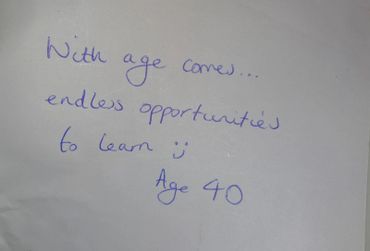 With age comes...
endless opportunities
to learn :)
Age 40